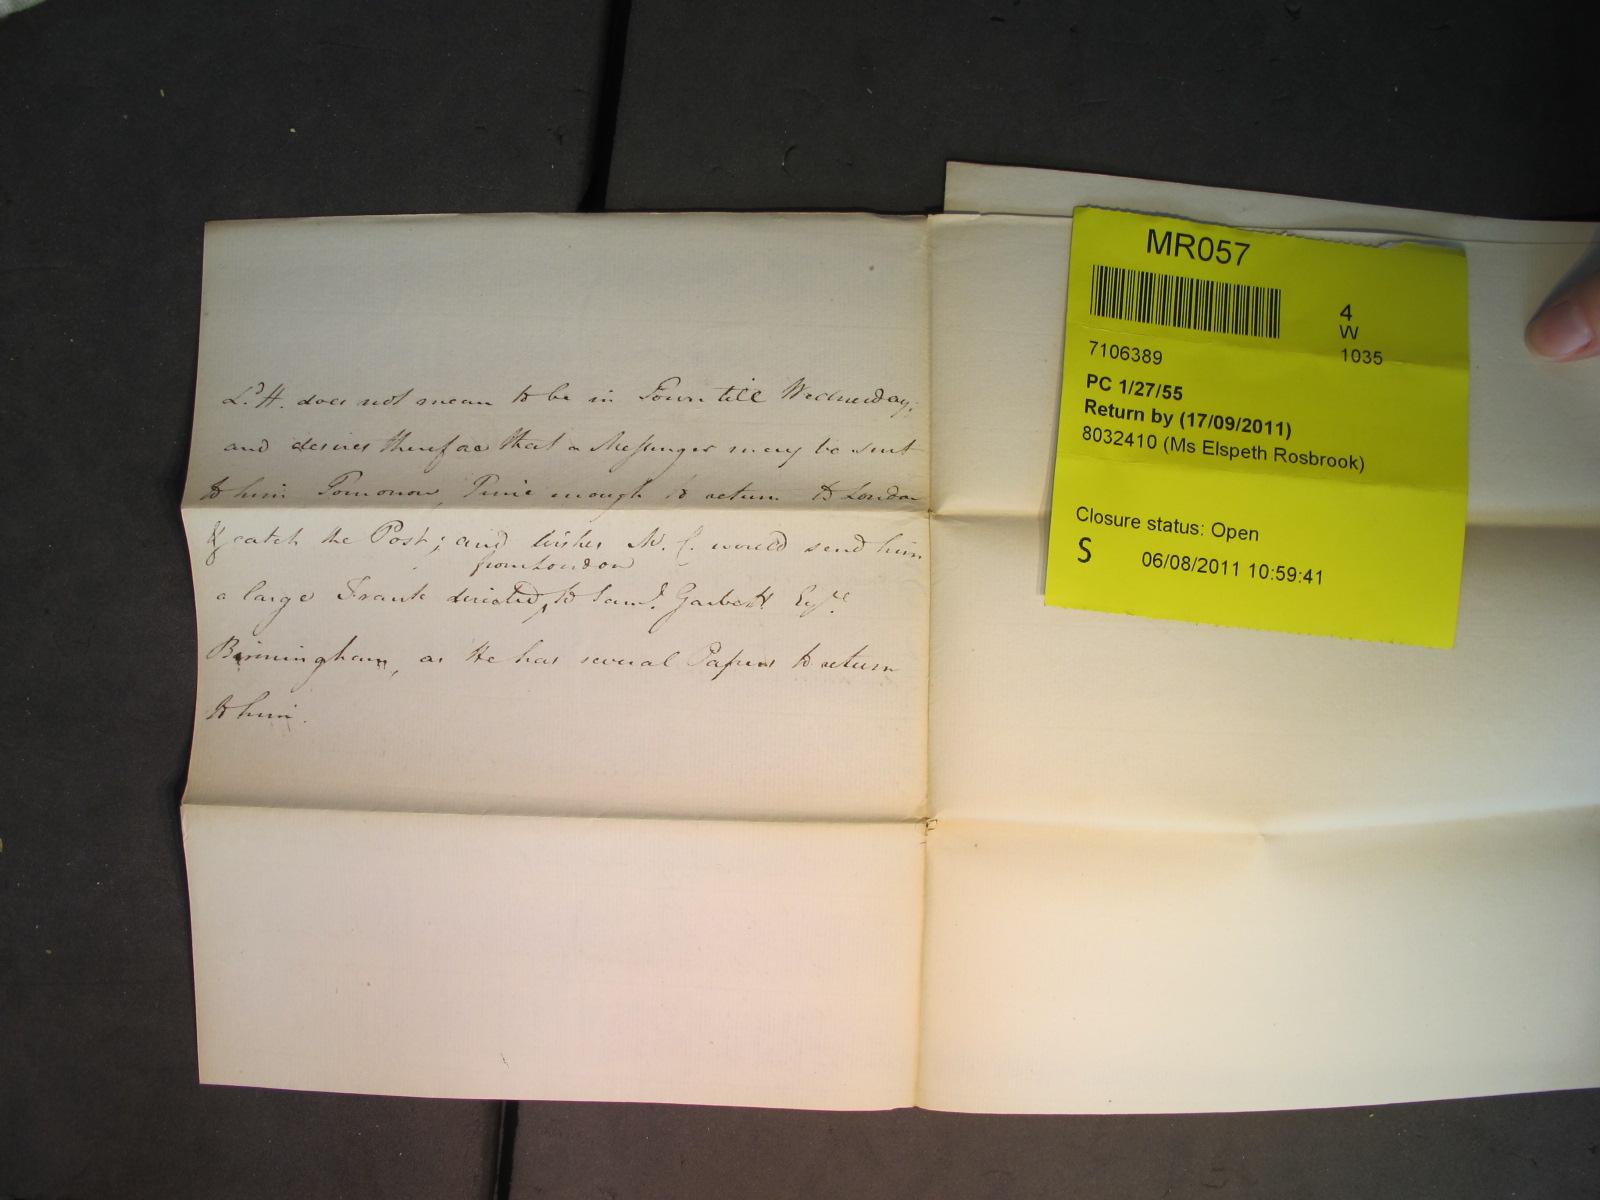 L.d H. does not mean to be in Town till Wednesday;
and desires therefore that a Messenger may be sent
to him Tomorrow, Time enough to return to London
& catch the Post; and wishes M. C. would send him
from London
a large Frank directed, to Sam.l Garbett Esq.re
Birmingham, as He has several Papers to return
to him.
MR057
4
W
7106389
1035
PC 1/27/55
Return by (17/09/2011)
8032410 (Ms Elspeth Rosbrook)
Closure status: Open
S
06/08/2011 10:59:41